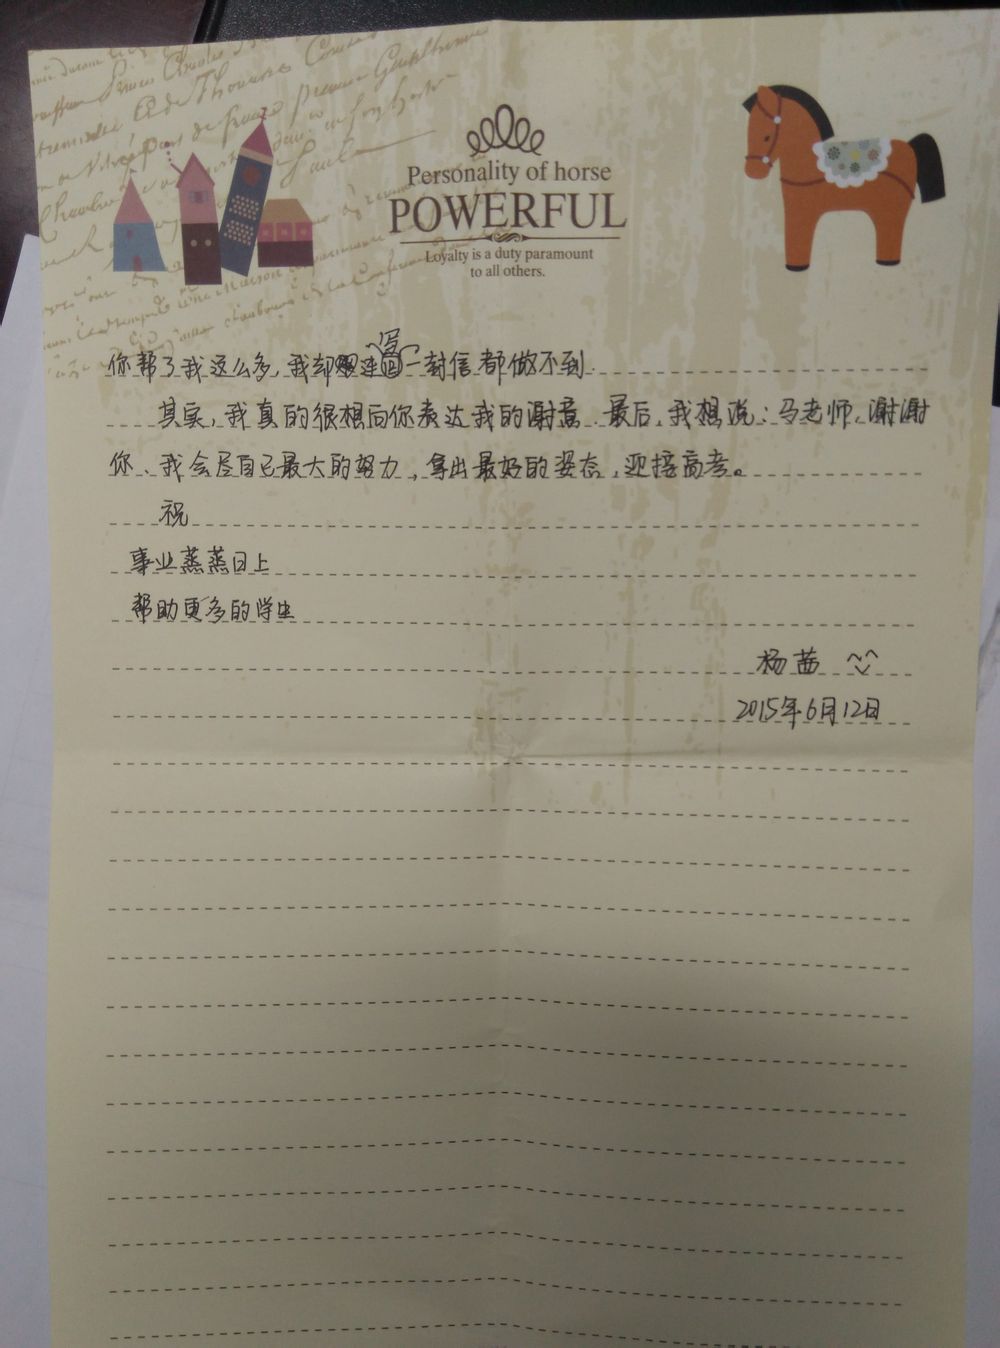 Personality of horse
POWERFUL
Loyalty is a duty paramount
to all others.
你帮了我这么多,我却连写一封信都做不到.
其实,我真的很想向你表达我的谢意.最后,我想说:马老师,谢谢
你、我会尽自己最大的努力,拿出最好的姿态,迎接高考。
祝
事业蒸蒸日上
帮助更多的学生
杨茜 ^_^
2015年6月12日